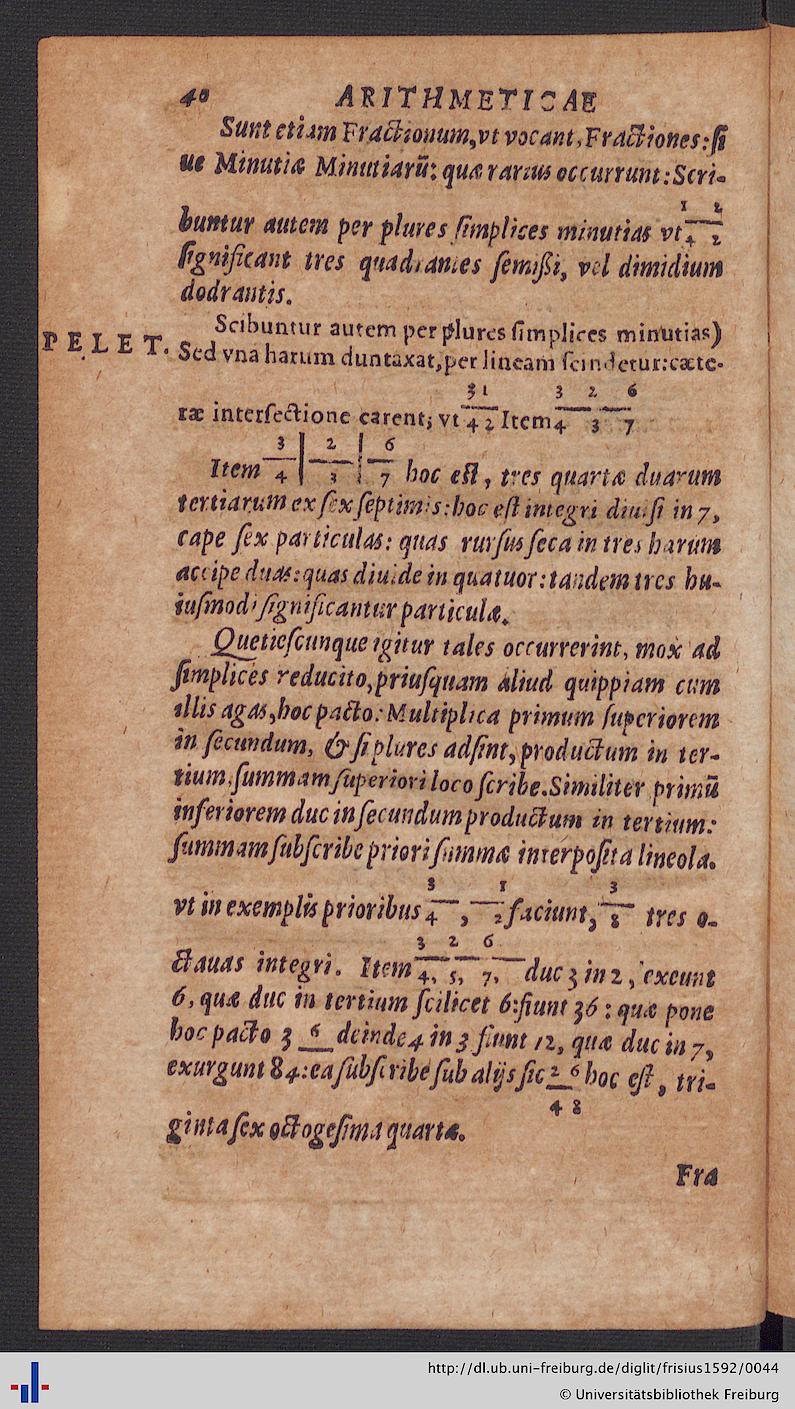 40 ARITHMETICAE
Sunt etiam Fractionum, vt vocant, Fractiones: ſi
ue Minutiæ Minutiarū: quæ rarius occurrunt: Scri-
1 2
buntur autem per plures ſimplices minutias vt 4 2
ſignificant tres quadrantes ſemißi, vel dimidium
dodrantis.
Scibuntur autem per plures ſimplices minutias)
PELET. Sed vna harum duntaxat, per lineam ſcindetur: cæte-
3 1 3 2 6
ræ interſectione carent; vt 4 2 Item 4 3 7
3 | 2 | 6
Item 4 | 3 | 7 hoc eſt, tres quartæ duarum
tertiarum ex ſex ſeptimis: hoc eſt integri diuiſi in 7,
cape ſex particulas: quas rurſus ſeca in tres harum
accipe duas: quas diuide in quatuor: tandem tres hu-
iuſmodi ſignificantur particulæ.
Quetieſcunque igitur tales occurrerint, mox ad
ſimplices reducito, priuſquam aliud quippiam cum
illis agas, hoc pacto: Multiplica primum ſuperiorem
in ſecundum, & ſi plures adſint, productum in ter-
tium. ſummam ſuperiori loco ſcribe. Similiter primū
inferiorem duc in ſecundum productum in tertium:
ſummam ſubſcribe priori ſummæ interpoſita lineola.
3 1 3
vt in exemplis prioribus 4 , 2 faciunt, 8 tres o-
3 2 6
ctauas integri. Item 4, 5, 7, duc 3 in 2, exeunt
6, quæ duc in tertium ſcilicet 6: fiunt 36: quæ pone
hoc pacto 3 6 deinde 4 in 3 fiunt 12, quæ duc in 7,
exurgunt 84: ea ſubſcribe ſub alijs ſic 2 6 hoc eſt, tri-
4 8
ginta ſex octogeſima quartæ.
Fra
http://dl.ub.uni-freiburg.de/diglit/frisius1592/0044
© Universitätsbibliothek Freiburg